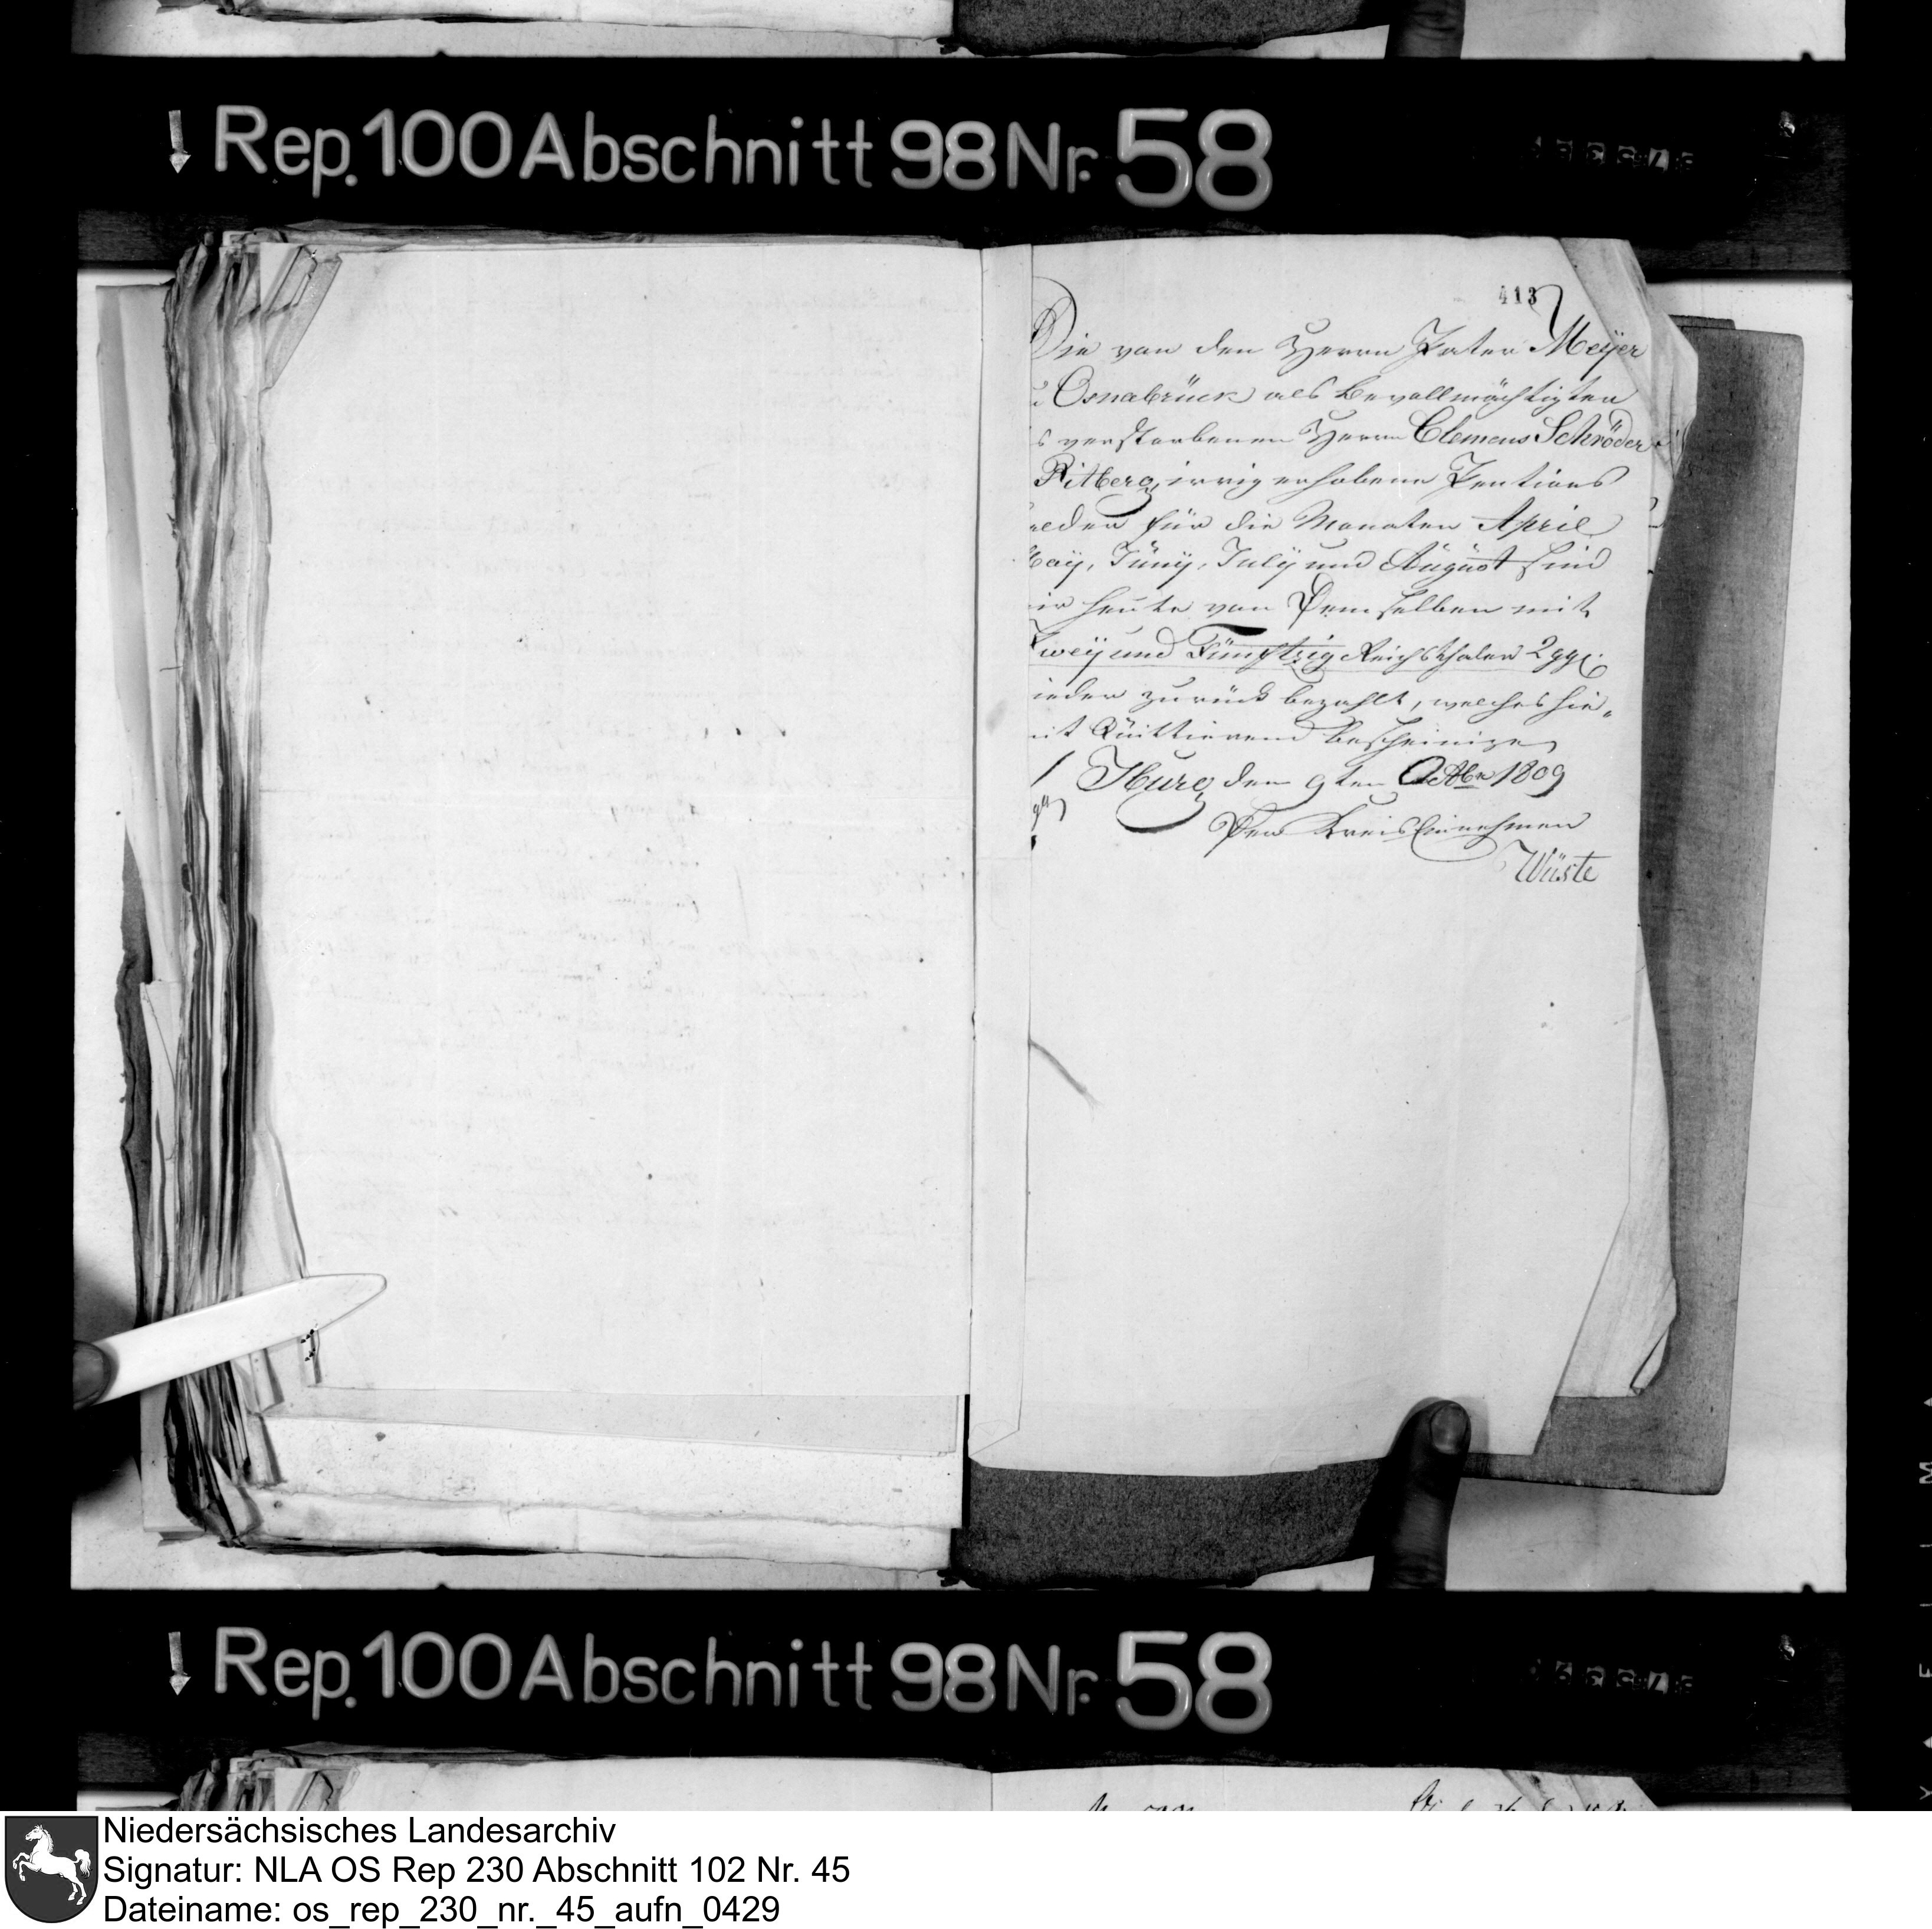 Rep. 100 Abschnitt 98 Nr. 58
413
Die von den Herrn Pater Meÿer
Osnabrück als Bevollmächtigten
s verstorbenen Herrn Clemens Schröder
Ritberg, irrig erhobene Pentions
elder für die Monaten April
Maÿ, Junÿ, Julÿ und August sind
ir heute von Demselben mit
Zweÿ und Fünftzig Reichsthaler 2 ggl.
ieder zurück bezahlt, welches hie„
it Quittierend bescheinige
Iburg den 9ten Octbr 1809
Der Kreis Einnehmer
Wüste
Rep. 100 Abschnitt 98 Nr. 58
Niedersächsisches Landesarchiv
Signatur: NLA OS Rep 230 Abschnitt 102 Nr. 45
Dateiname: os_rep_230_nr._45_aufn_0429